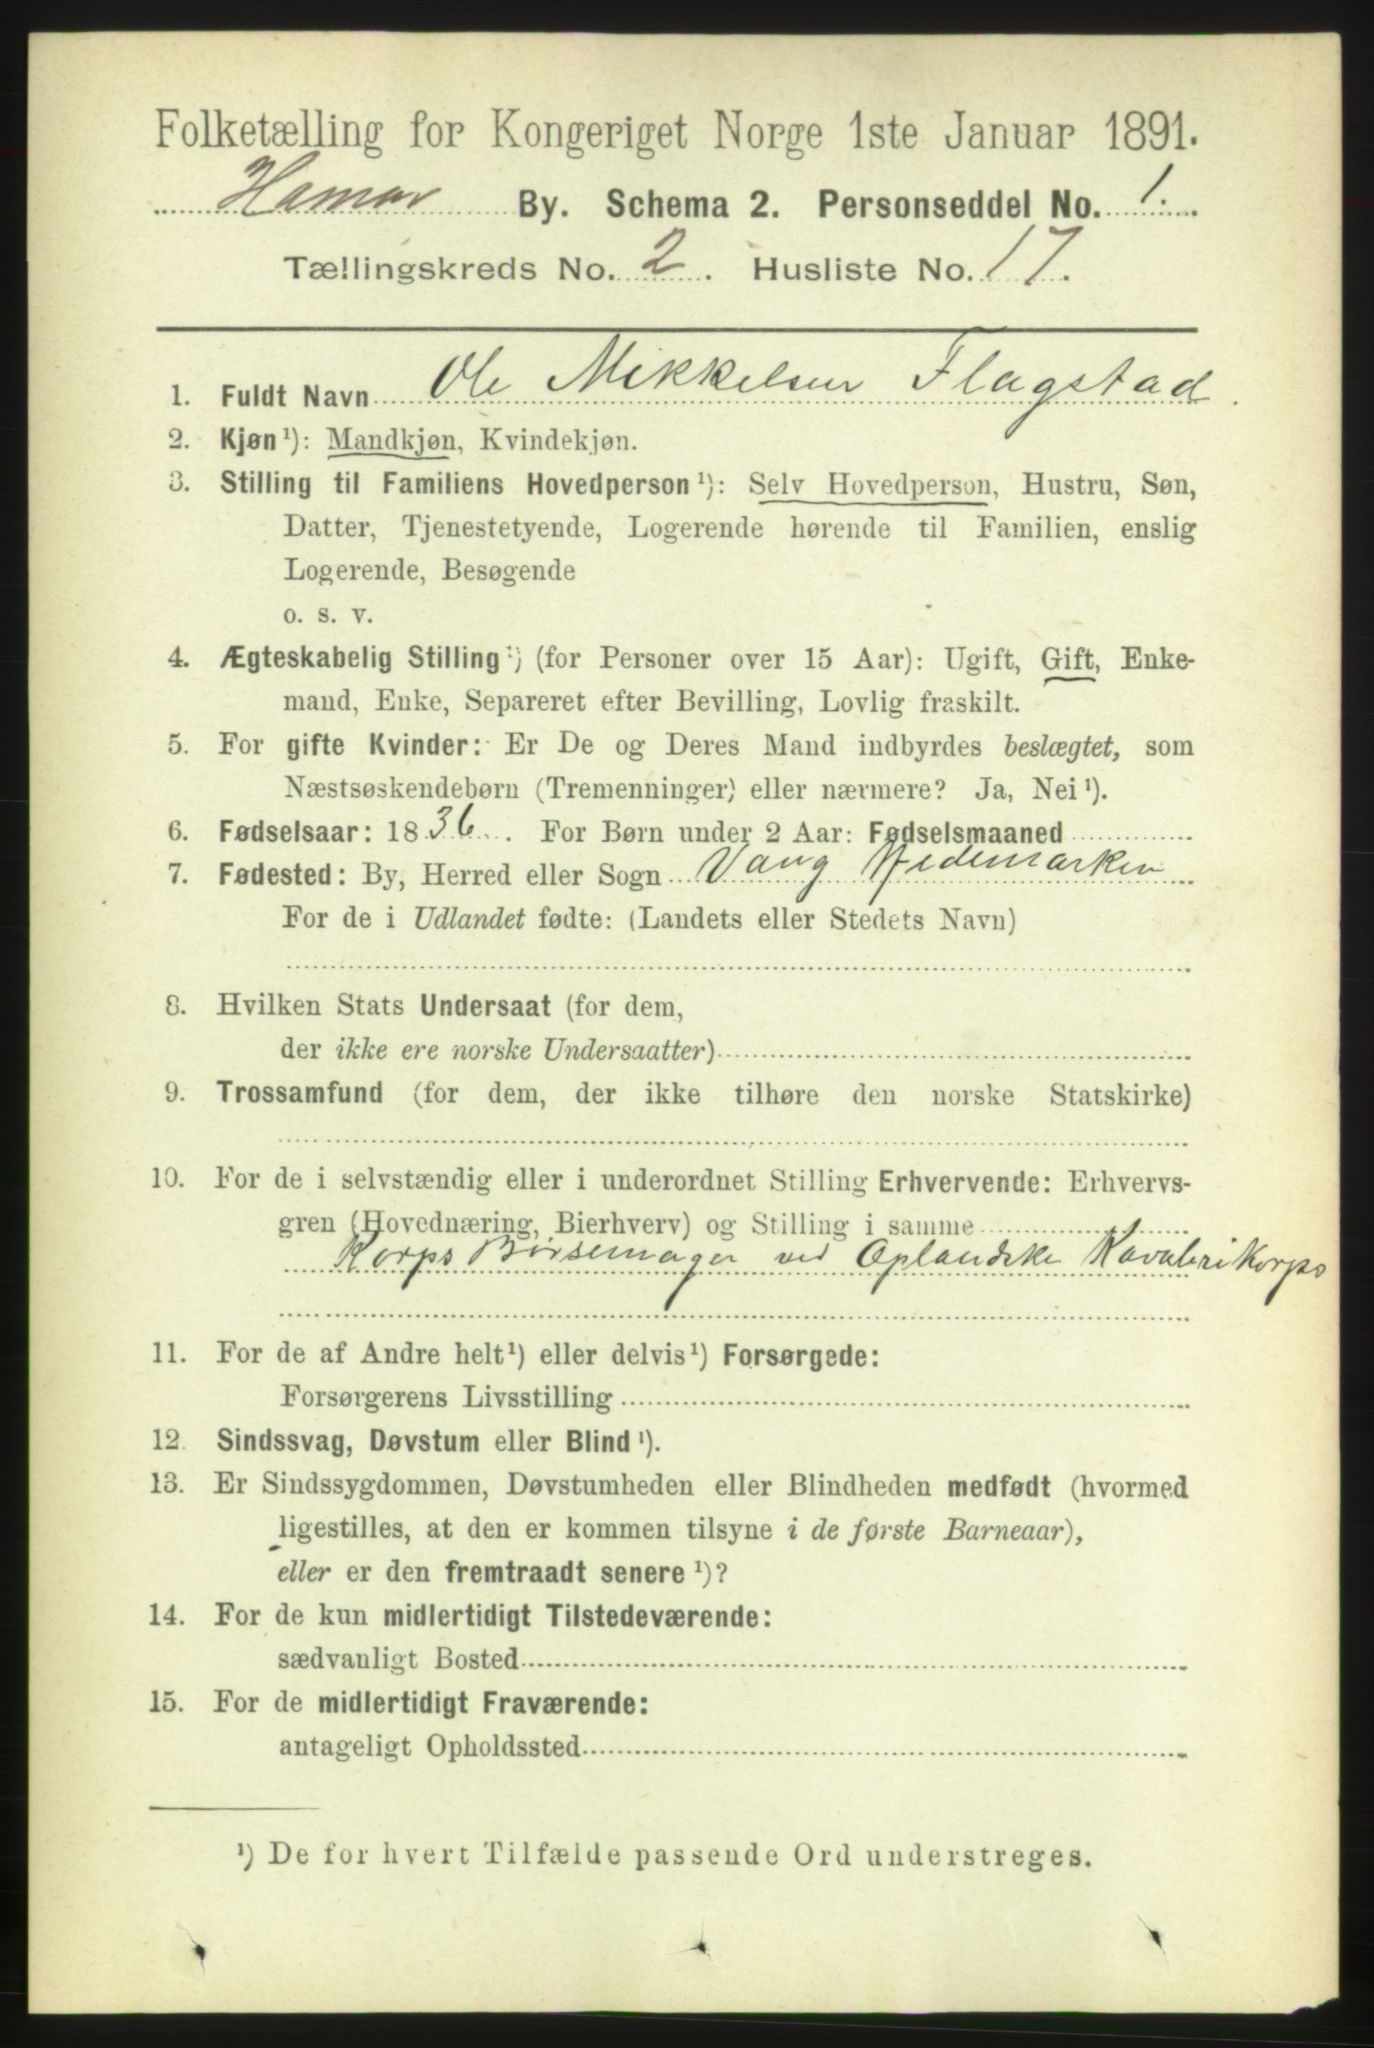 Folketælling for Kongeriget Norge 1ste Januar 1891.
Hamar By. Schema 2. Personseddel No. 1.
Tællingskreds No. 2. Husliste No. 17.
1. Fuldt Navn Ole Mikkelsen Flagstad.
2. Kjøn ¹): Mandkjøn, Kvindekjøn.
3. Stilling til Familiens Hovedperson ¹): Selv Hovedperson, Hustru, Søn,
Datter, Tjenestetyende, Logerende hørende til Familien, enslig
Logerende, Besøgende
o. s. v.
4. Ægteskabelig Stilling ¹) (for Personer over 15 Aar): Ugift, Gift, Enke-
mand, Enke, Separeret efter Bevilling, Lovlig fraskilt.
5. For gifte Kvinder: Er De og Deres Mand indbyrdes beslægtet, som
Næstsøskendebørn (Tremenninger) eller nærmere? Ja, Nei ¹).
6. Fødselsaar: 1836. For Børn under 2 Aar: Fødselsmaaned
7. Fødested: By, Herred eller Sogn Vang Hedemarken
For de i Udlandet fødte: (Landets eller Stedets Navn)
8. Hvilken Stats Undersaat (for dem,
der ikke ere norske Undersaatter)
9. Trossamfund (for dem, der ikke tilhøre den norske Statskirke)
10. For de i selvstændig eller i underordnet Stilling Erhvervende: Erhvervs-
gren (Hovednæring, Bierhverv) og Stilling i samme
Korps Børsemager ved Oplandske Kavaleri Korps
11. For de af Andre helt ¹) eller delvis ¹) Forsørgede:
Forsørgerens Livsstilling
12. Sindssvag, Døvstum eller Blind ¹).
13. Er Sindssygdommen, Døvstumheden eller Blindheden medfødt (hvormed
ligestilles, at den er kommen tilsyne i de første Barneaar),
eller er den fremtraadt senere ¹)?
14. For de kun midlertidigt Tilstedeværende:
sædvanligt Bosted
15. For de midlertidigt Fraværende:
antageligt Opholdssted
¹) De for hvert Tilfælde passende Ord understreges.